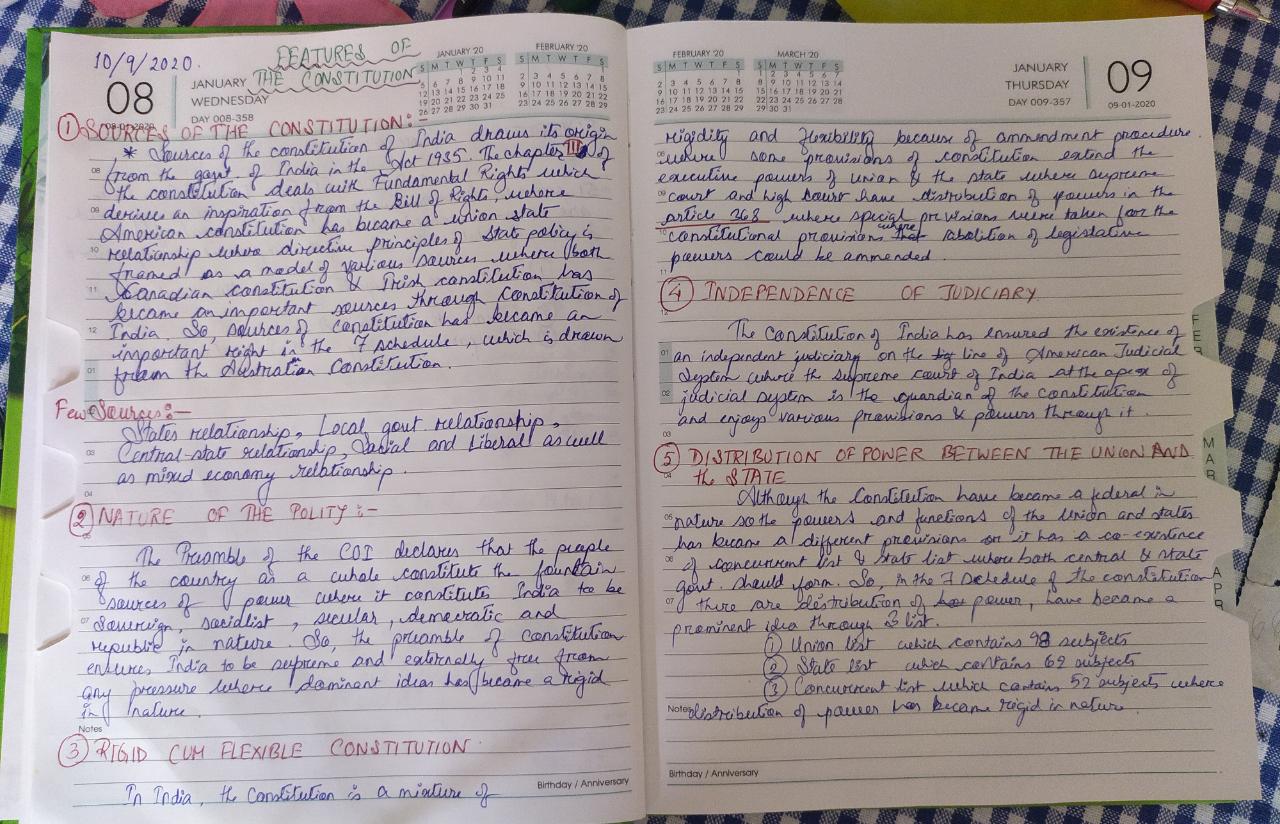 10/9/2020.
FEATURES OF
THE CONSTITUTION
08
JANUARY
WEDNESDAY
DAY 008-358
JANUARY '20
S M T W T F S
1 2 3 4
5 6 7 8 9 10 11
12 13 14 15 16 17 18
19 20 21 22 23 24 25
26 27 28 29 30 31
FEBRUARY '20
S M T W T F S
1
2 3 4 5 6 7 8
9 10 11 12 13 14 15
16 17 18 19 20 21 22
23 24 25 26 27 28 29
① SOURCES OF THE CONSTITUTION:-
* Sources of the constitution of India draws its origin
from the govt. of India in the Act 1935. The chapter III of
the constitution deals with Fundamental Rights which
derives an inspiration from the Bill of Rights, where
American constitution has became a union state
relationship where directive principles of state policy is
framed as a model of various sources where both
Canadian constitution & Irish constitution has
became an important sources through Constitution of
India. So, sources of constitution has became an
important right in the 7 schedule, which is drawn
from the Australian Constitution.
Few Sources:-
States relationship, Local govt relationship,
Central-state relationship, Social and Liberal as well
as mixed economy relationship.
② NATURE OF THE POLITY :-
The Preamble of the COI declares that the people
of the country as a whole constitute the fountain
sources of power where it constitutes India to be
Sovereign, socialist, secular, democratic and
republic in nature. So, the preamble of constitution
ensures India to be supreme and externally free from
any pressure where dominant ideas has became a rigid
in nature.
Notes
③ RIGID CUM FLEXIBLE CONSTITUTION
Birthday / Anniversary
In India, the Constitution is a mixture of
FEBRUARY '20
S M T W T F S
1
2 3 4 5 6 7 8
9 10 11 12 13 14 15
16 17 18 19 20 21 22
23 24 25 26 27 28 29
MARCH '20
S M T W T F S
1 2 3 4 5 6 7
8 9 10 11 12 13 14
15 16 17 18 19 20 21
22 23 24 25 26 27 28
29 30 31
JANUARY
THURSDAY
DAY 009-357
09
09-01-2020
rigidity and flexibility because of ammendment procedure.
where some provisions of constitution extend the
executive powers of union & the state where supreme
court and high court have distribution of powers in the
article 368 where special provisions were taken for the
constitutional provisions where abolition of legislative
powers could be ammended.
④ INDEPENDENCE OF JUDICIARY
The Constitution of India has ensured the existence of
an independent judiciary on the line of American Judicial
System where the supreme court of India at the apex of
judicial system is the guardian of the constitution
and enjoys various provisions & powers through it.
⑤ DISTRIBUTION OF POWER BETWEEN THE UNION AND
the STATE
Although the Constitution have became a federal in
nature so the powers and functions of the Union and states
has became a different provisions or it has a co-existence
of concurrent list & state list where both central & state
govt. should form. So, in the 7 schedule of the constitution
there are distribution of power, have became a
prominent idea through 3 list.
① Union list which contains 98 subjects
② State list which contains 62 subjects
③ Concurrent list which contains 52 subjects where
Notes distribution of power has became rigid in nature.
Birthday / Anniversary
FEB
MAR
APR